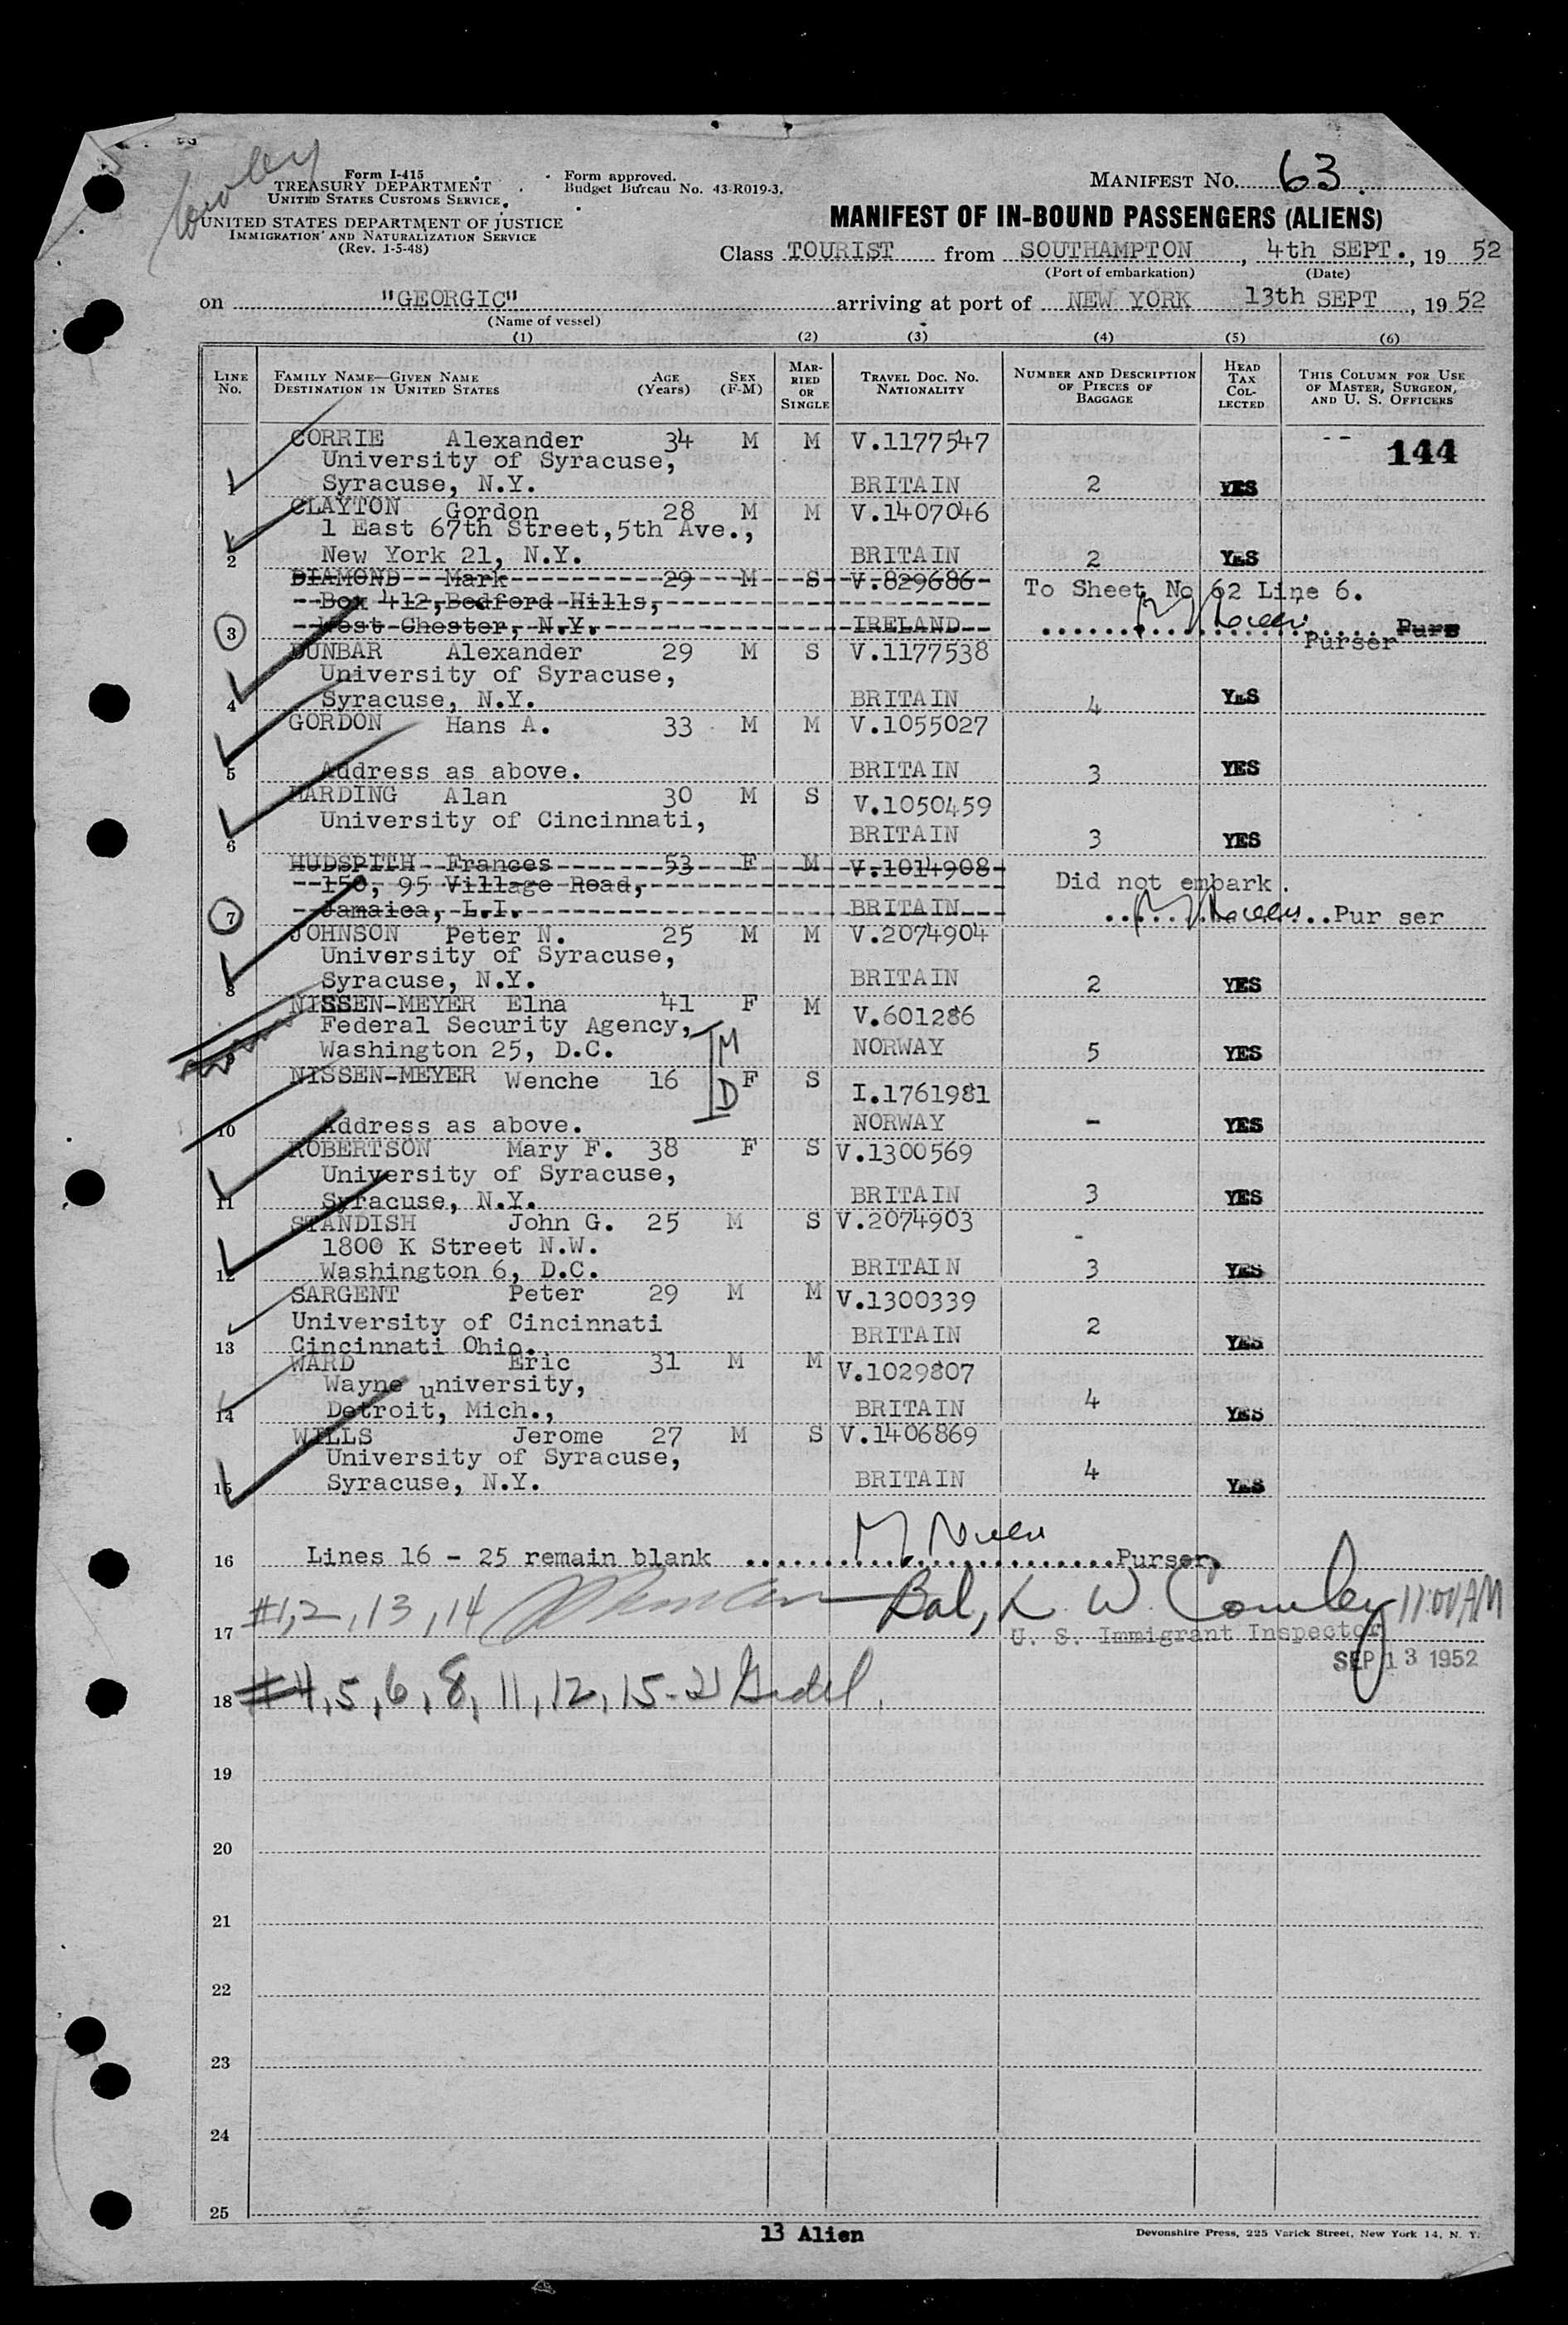 Cowley
Form I-415
TREASURY DEPARTMENT
UNITED STATES CUSTOMS SERVICE
UNITED STATES DEPARTMENT OF JUSTICE
IMMIGRATION AND NATURALIZATION SERVICE
(Rev. 1-5-48)
Form approved.
Budget Bureau No. 43-R019-3.
MANIFEST NO. 63.
MANIFEST OF IN-BOUND PASSENGERS (ALIENS)
Class TOURIST from SOUTHAMPTON, 4th SEPT., 19 52
(Port of embarkation) (Date)
on "GEORGIC" arriving at port of NEW YORK 13th SEPT, 19 52
(Name of vessel)
(1) (2) (3) (4) (5) (6)
LINE NO. FAMILY NAME—GIVEN NAME DESTINATION IN UNITED STATES AGE (YEARS) SEX (F-M) MARRIED OR SINGLE TRAVEL DOC. NO. NATIONALITY NUMBER AND DESCRIPTION OF PIECES OF BAGGAGE HEAD TAX COLLECTED THIS COLUMN FOR USE OF MASTER, SURGEON, AND U. S. OFFICERS
CORRIE Alexander 34 M M V.1177547 144
University of Syracuse,
1 Syracuse, N.Y. BRITAIN 2 YES
CLAYTON Gordon 28 M M V.1407046
1 East 67th Street,5th Ave.,
2 New York 21, N.Y. BRITAIN 2 YES
DIAMOND Mark 29 M S V.829686 To Sheet No 62 Line 6.
Box 412,Bedford Hills,
3 West Chester, N.Y. IRELAND Purs
Purser
DUNBAR Alexander 29 M S V.1177538
University of Syracuse,
4 Syracuse, N.Y. BRITAIN 4 YES
GORDON Hans A. 33 M M V.1055027
5 Address as above. BRITAIN 3 YES
HARDING Alan 30 M S V.1050459
University of Cincinnati,
6 BRITAIN 3 YES
HUDSPITH Frances 53 F M V.1014908
150, 95 Village Road, Did not embark.
7 Jamaica, L.I. BRITAIN Pur ser
JOHNSON Peter N. 25 M M V.2074904
University of Syracuse,
8 Syracuse, N.Y. BRITAIN 2 YES
NISSEN-MEYER Elna 41 F M V.601286
Federal Security Agency,
9 Washington 25, D.C. M NORWAY 5 YES
NISSEN-MEYER Wenche 16 F S I.1761981
D
10 Address as above. NORWAY - YES
ROBERTSON Mary F. 38 F S V.1300569
University of Syracuse,
11 Syracuse, N.Y. BRITAIN 3 YES
STANDISH John G. 25 M S V.2074903
1800 K Street N.W. -
12 Washington 6, D.C. BRITAIN 3 YES
SARGENT Peter 29 M M V.1300339
University of Cincinnati
13 Cincinnati Ohio. BRITAIN 2 YES
WARD Eric 31 M M V.1029807
Wayne university,
14 Detroit, Mich., BRITAIN 4 YES
WILLS Jerome 27 M S V.1406869
University of Syracuse,
15 Syracuse, N.Y. BRITAIN 4 YES
16 Lines 16 - 25 remain blank Purser.
#1,2,13,14 Bal, K. W. Cowley 11:00 AM
17 U. S. Immigrant Inspector
SEP 13 1952
18 #4,5,6,8,11,12,15
19
20
21
22
23
24
25
13 Alien
Devonshire Press, 225 Varick Street, New York 14, N. Y.